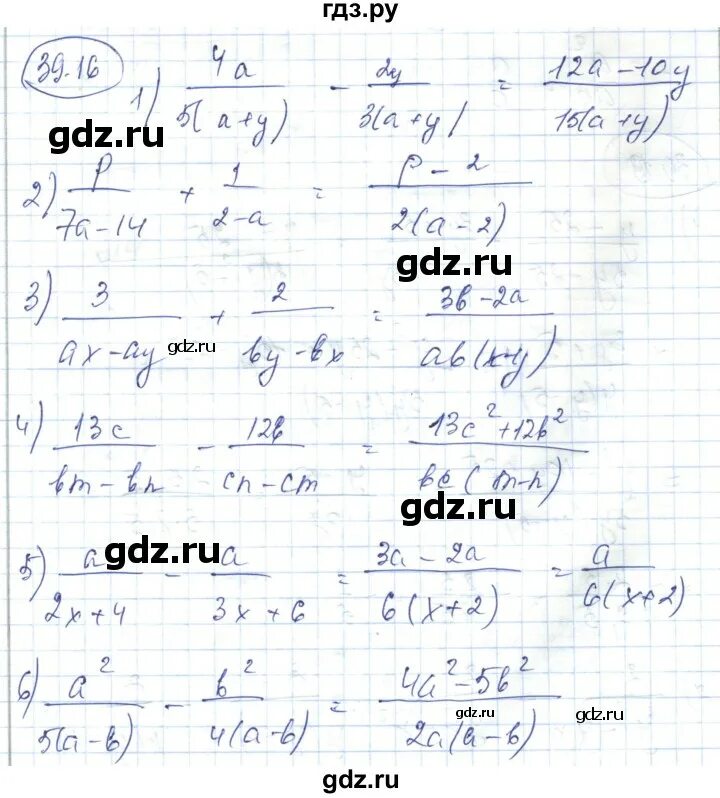 гдз.ру
39.16
1) 4a / 5(a+y) - 2y / 3(a+y) = 12a-10y / 15(a+y)
gdz.ru
2) p / 7a-14 + 1 / 2-a = p-2 / 2(a-2)
gdz.ru
3) 3 / ax-ay + 2 / by-bx = 3b-2a / ab(x-y)
gdz.ru
4) 13c / bm-bn - 12b / cn-cm = 13c²+12b² / bc(m-n)
gdz.ru
gdz.ru
5) a / 2x+4 - a / 3x+6 = 3a-2a / 6(x+2) = a / 6(x+2)
6) a² / 5(a-b) - b² / 4(a-b) = 4a²-5b² / 2a(a-b)
gdz.ru
gdz.ru
gdz.ru